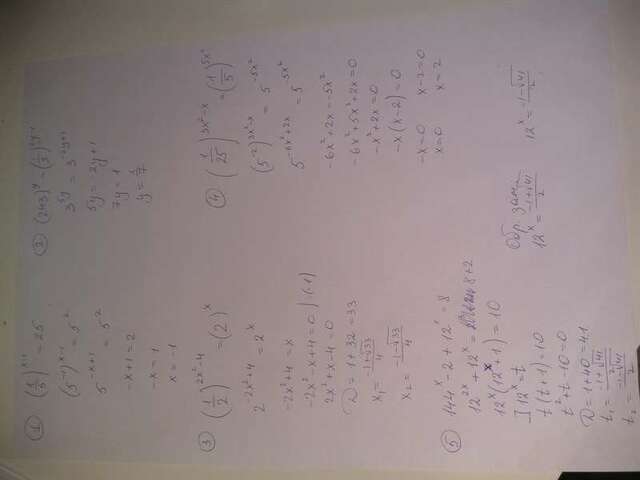 ① (1/5)^(x-1) = 25
(5^(-1))^(x-1) = 5^2
5^(-x+1) = 5^2
-x+1 = 2
-x = 1
x = -1
② (243)^y = (1/3)^(2y-1)
3^(5y) = 3^(-2y+1)
5y = -2y+1
7y = 1
y = 1/7
③ (1/2)^(2x²-4) = (2)^x
2^(-2x²+4) = 2^x
-2x²+4 = x
-2x²-x+4 = 0 | (-1)
2x²+x-4 = 0
D = 1+32 = 33
x₁ = (-1+√33)/4
x₂ = (-1-√33)/4
④ (1/25)^(3x²-x) = (1/5)^(5x²)
(5^(-2))^(3x²-x) = 5^(-5x²)
5^(-6x²+2x) = 5^(-5x²)
-6x²+2x = -5x²
-6x²+5x²+2x = 0
-x²+2x = 0
-x(x-2) = 0
-x = 0 x-2 = 0
x = 0 x = 2
⑤ 144^x - 2 + 12^x = 8
12^(2x) + 12^x = 8+2
12^x (12^x + 1) = 10
] 12^x = t
t(t+1) = 10
t²+t-10 = 0
D = 1+40 = 41
t₁ = (-1+√41)/2
t₂ = (-1-√41)/2
Обр. зам.
12^x = (-1+√41)/2 12^x = (-1-√41)/2